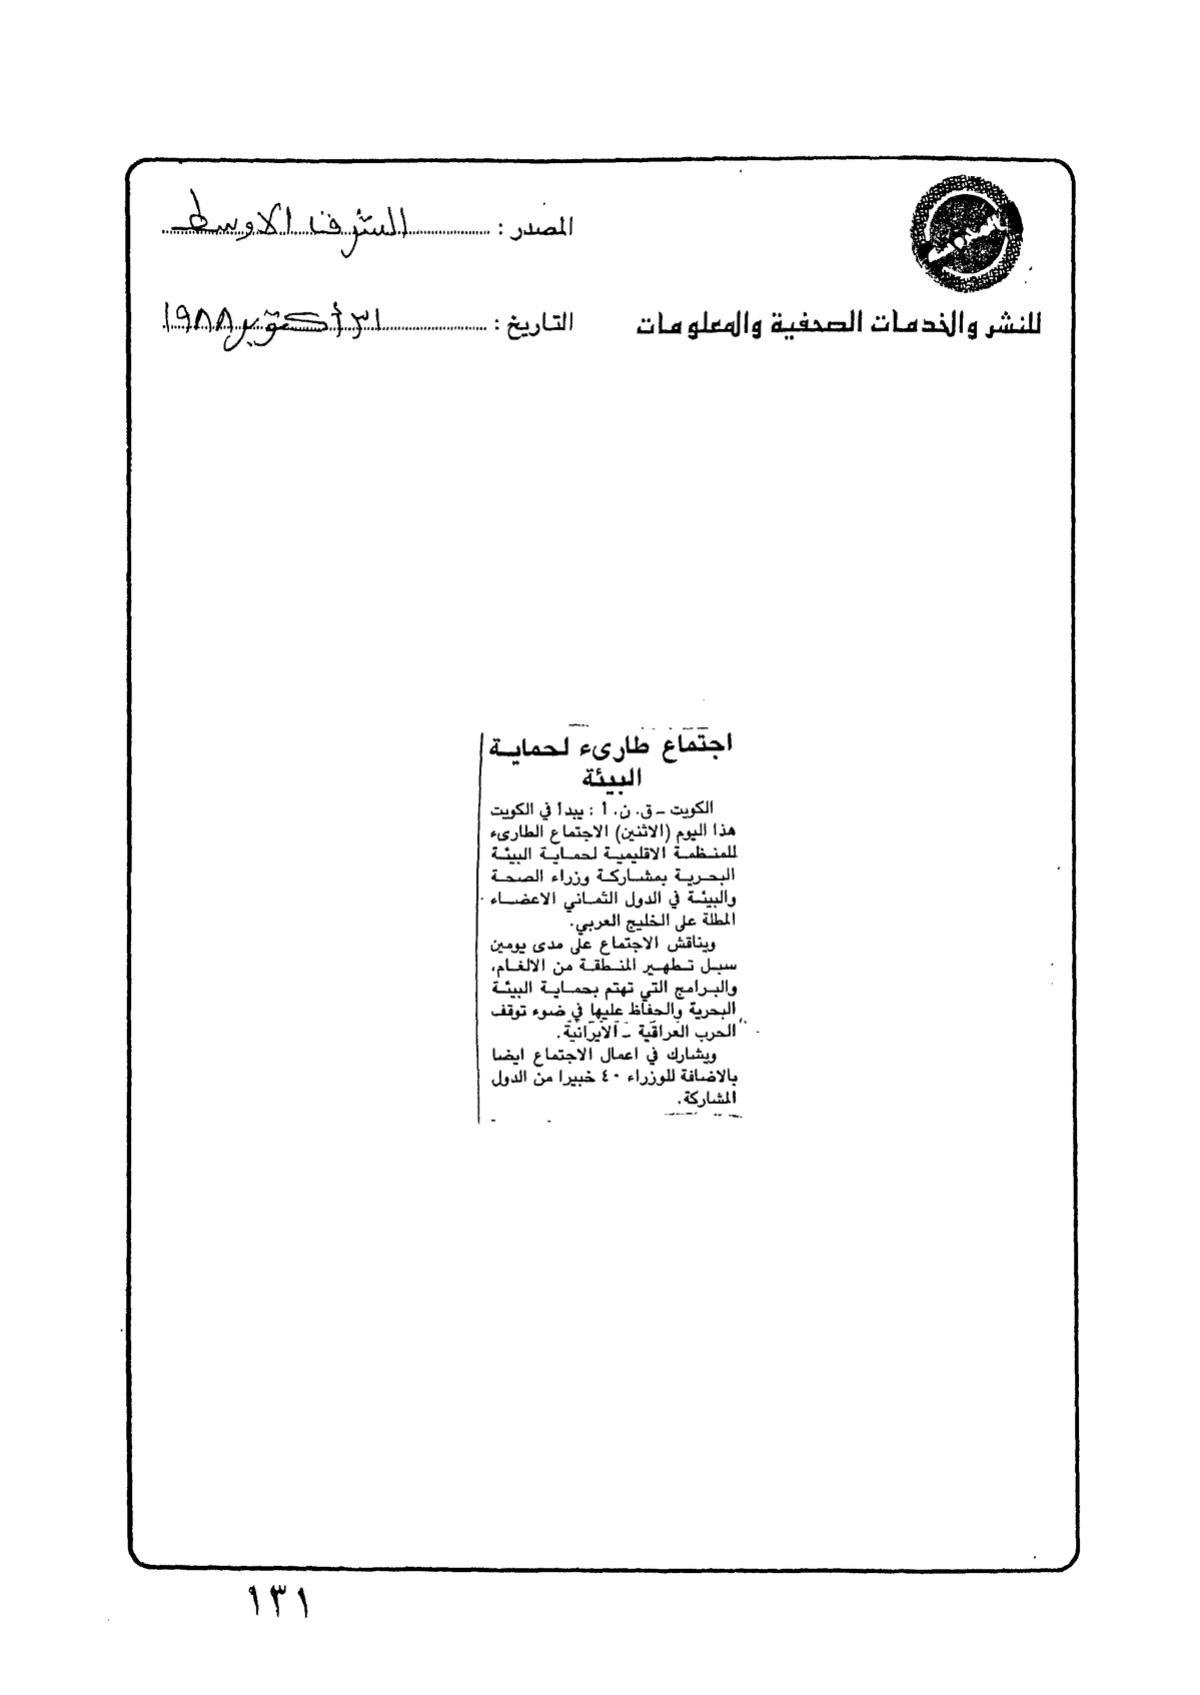 المصدر : الشرق الاوسط
للنشر والخدمات الصحفية والمعلومات
التاريخ : ٣١ أكتوبر ١٩٨٨
اجتماع طارىء لحماية
البيئة
الكويت ـ ق. ن. أ : يبدأ في الكويت
هذا اليوم (الاثنين) الاجتماع الطارىء
للمنظمة الاقليمية لحماية البيئة
البحرية بمشاركة وزراء الصحة
والبيئة في الدول الثماني الاعضاء
المطلة على الخليج العربي.
ويناقش الاجتماع على مدى يومين
سبل تطهير المنطقة من الالغام،
والبرامج التي تهتم بحماية البيئة
البحرية والحفاظ عليها في ضوء توقف
الحرب العراقية ـ الايرانية.
ويشارك في اعمال الاجتماع ايضا
بالاضافة للوزراء ٤٠ خبيرا من الدول
المشاركة.
١٣١